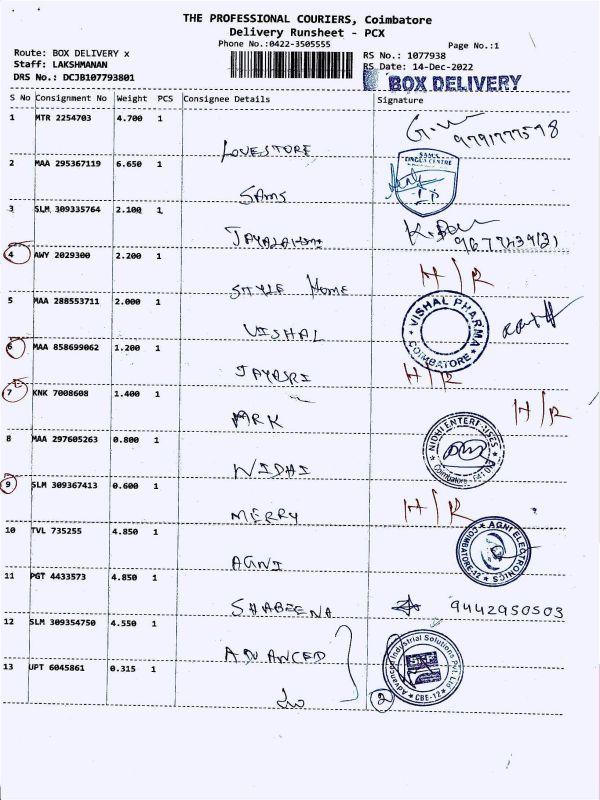 THE PROFESSIONAL COURIERS, Coimbatore
Delivery Runsheet - PCX
Phone No.:0422-3505555
Page No.:1
Route: BOX DELIVERY x
Staff: LAKSHMANAN
DRS No.: DCJB107793801
RS No.: 1077938
RS Date: 14-Dec-2022
BOX DELIVERY
S No Consignment No Weight PCS Consignee Details Signature
1 MTR 2254703 4.700 1
LOVESTORE 9791777598
2 MAA 295367119 6.650 1
SAMS
3 SLM 309335764 2.100 1
4 AWY 2029300 2.200 1
STYLE Home H/R
5 MAA 288553711 2.000 1
VISHAL VISHAL PHARMA COIMBATORE
6 MAA 858699062 1.200 1
JAYASRI H/R
7 KNK 7008608 1.400 1
ARK H/R
8 MAA 297605263 0.800 1
NIDHI
9 SLM 309367413 0.600 1
MERRY H/R
10 TVL 735255 4.850 1
AGNI AGNI ELECTRONICS COIMBATORE-12
11 PGT 4433573 4.850 1
SHABEENA 9442950503
12 SLM 309354750 4.550 1
ADVANCED Advanced Industrial Solutions Pvt. Ltd CBE-12
13 UPT 6045861 0.315 1
2